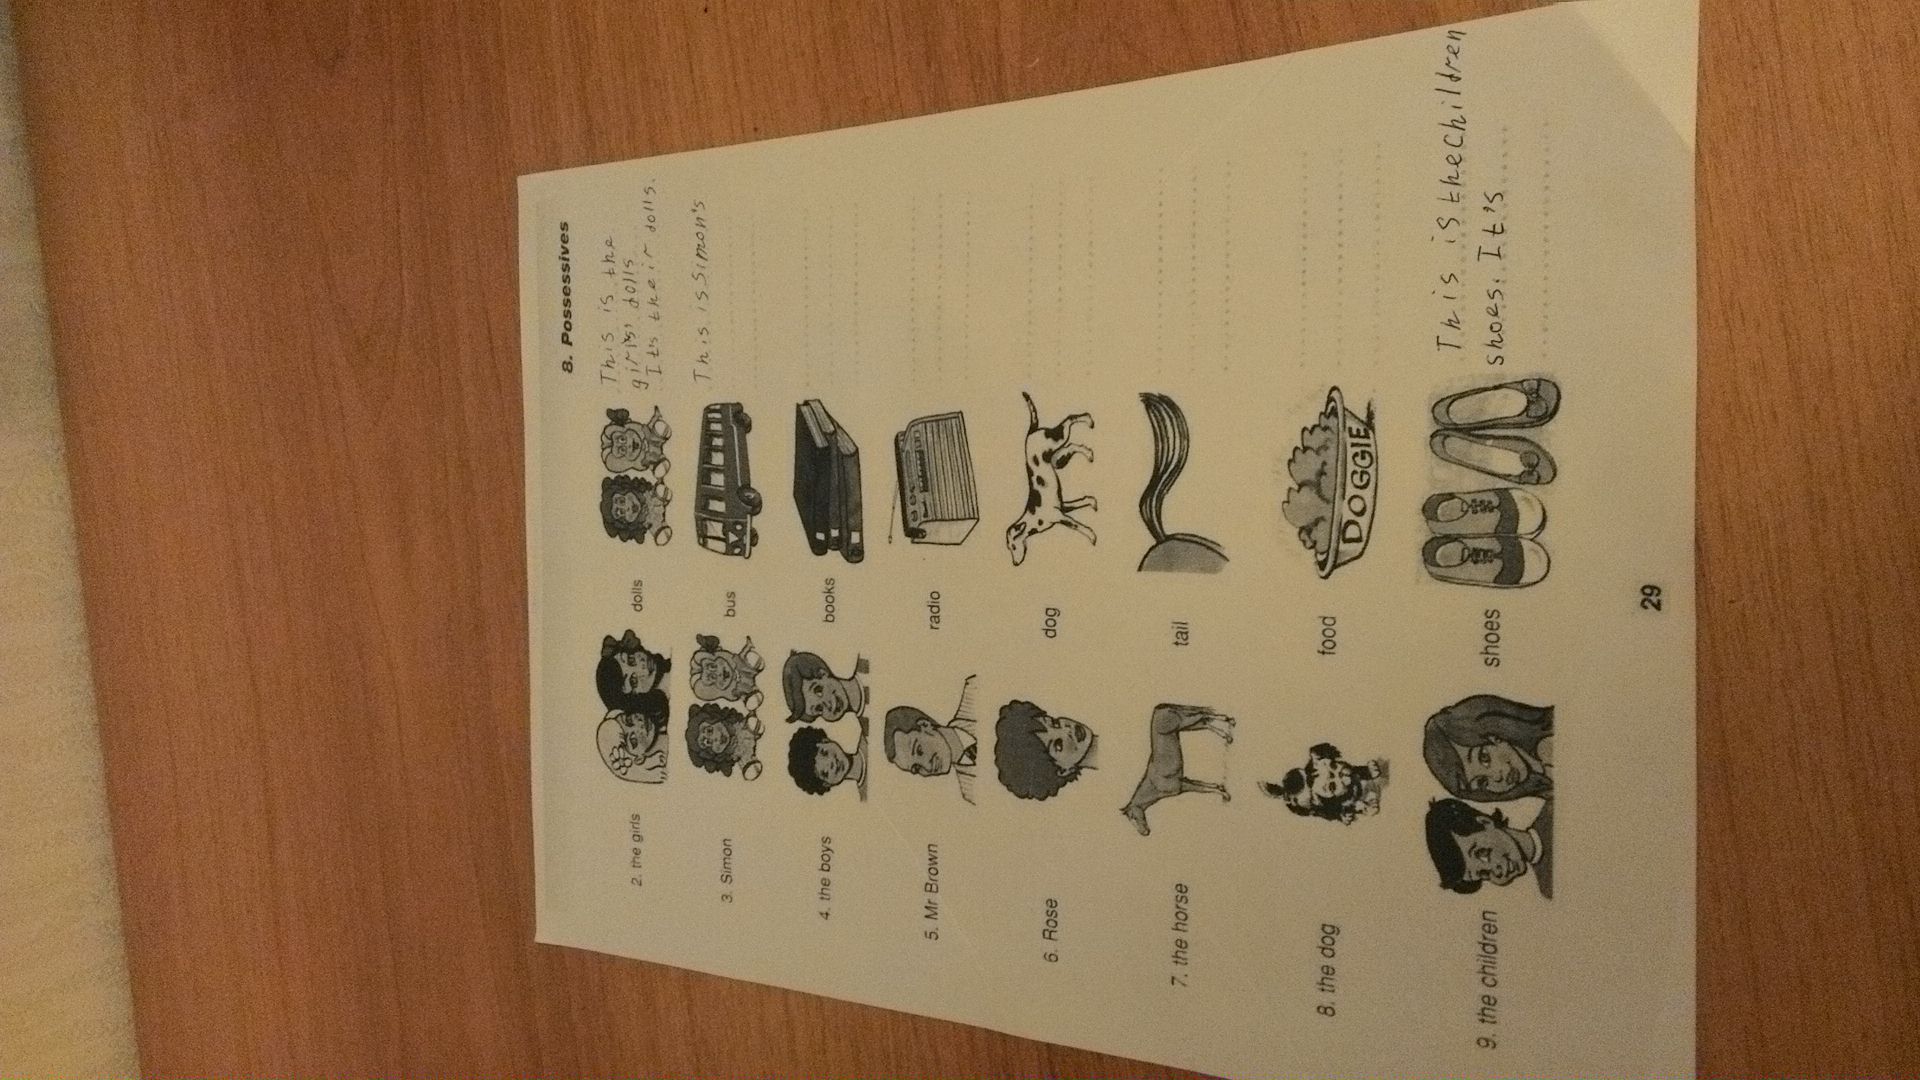 8. Possessives
2. the girls
dolls
This is the
girls' dolls
It's their dolls.
3. Simon
bus
This is Simon's
4. the boys
books
5. Mr Brown
radio
6. Rose
dog
7. the horse
tail
8. the dog
food
DOGGIE
9. the children
shoes
This is the Children
shoes. It's
29